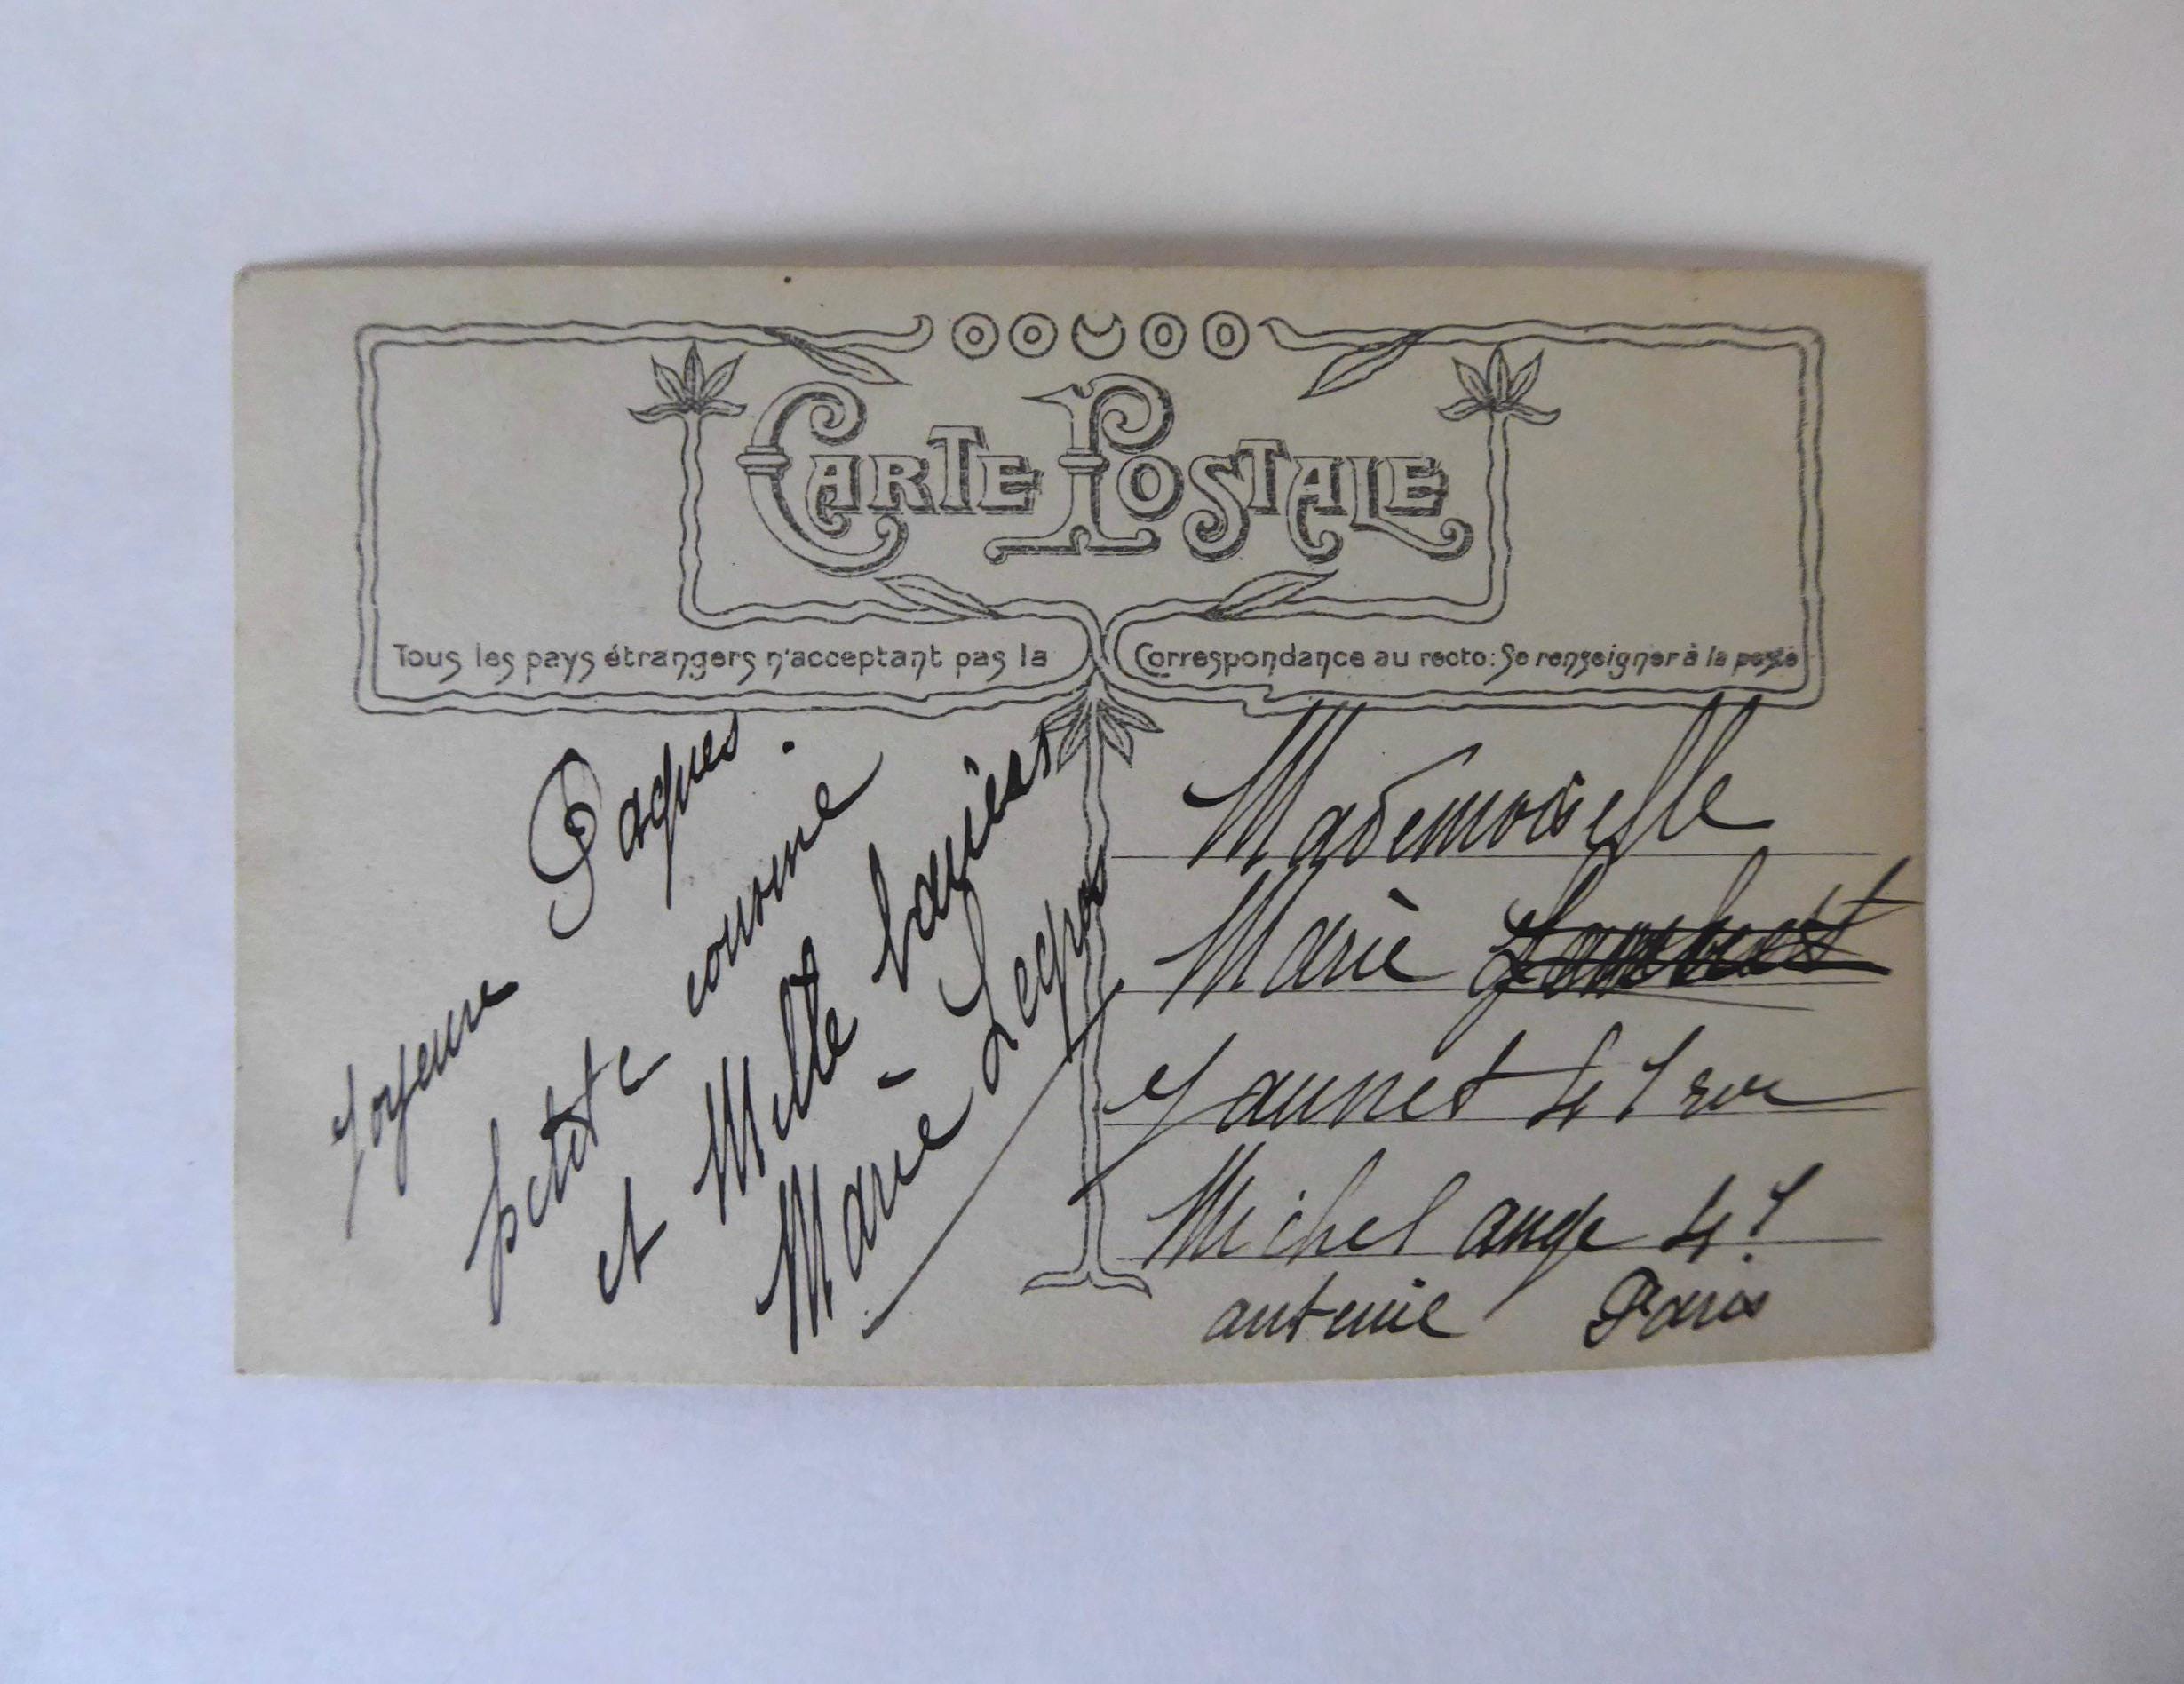 CARTE POSTALE
Tous les pays étrangers n'acceptant pas la
Correspondance au recto: Se renseigner à la poste
Joyeuse Paques
petite cousine
et Mille baisers
Marie Legros
Mademoiselle
Marie
Jaunet 41 rue
Michel ange 41
auteuil Paris